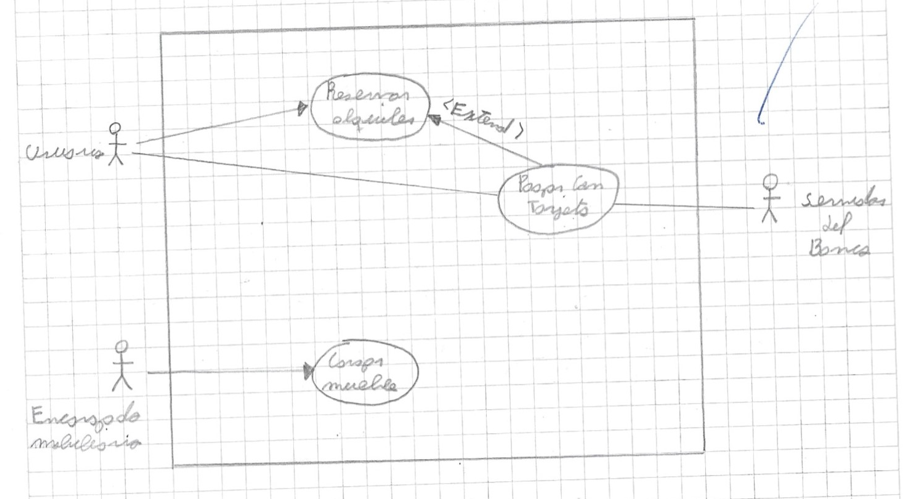 Reservar
alquiler
<Extend>
Usuario
Pagar Con
Tarjeta
Servidor
del
Banco
Cargar
mueble
Encargado
mobiliario